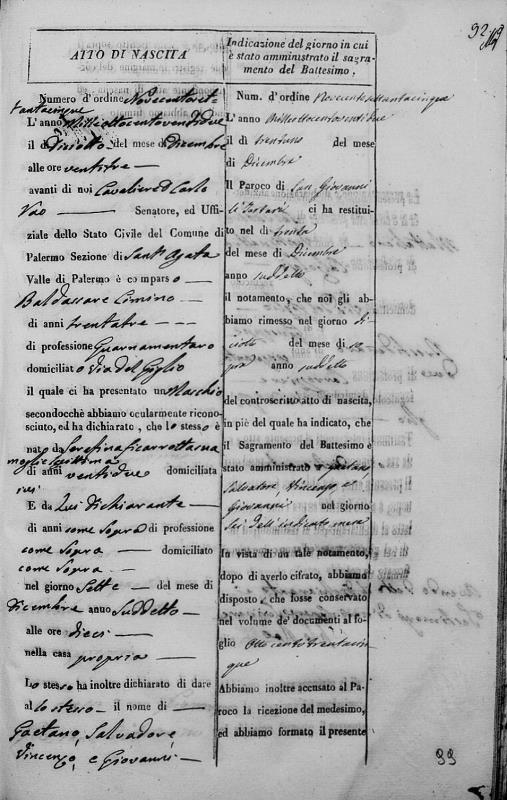 92
ATTO DI NASCITA
Numero d'ordine Novecentoset-
tantacinque
L'anno Milleottocentoventidue
il dì Diciotto del mese di Dicembre
alle ore ventitre
avanti di noi Cavaliere D. Carlo
Vao Senatore, ed Uffi-
ziale dello Stato Civile del Comune di
Palermo Sezione di Sant'Agata
Valle di Palermo è comparso
Baldassare Cimino
di anni trentatre
di professione Guarnamentaro
domiciliato Via del Giglio
il quale ci ha presentato un Maschio
secondocchè abbiamo ocularmente ricono-
sciuto, ed ha dichiarato, che lo stesso è
nato da Serafina Sicarrotta sua
moglie legittima
di anni ventidue domiciliata
ivi
E da Lui Dichiarante
di anni come Sopra di professione
come Sopra domiciliato
come Sopra
nel giorno Sette del mese di
Dicembre anno Suddetto
alle ore dieci
nella casa propria
Lo stesso ha inoltre dichiarato di dare
al lo stesso il nome di
Gaetano, Salvadore,
Vincenzo, e Giovanni
Indicazione del giorno in cui
è stato amministrato il sagra-
mento del Battesimo.
Num. d'ordine Novecentosettantacinque
L'anno Milleottocentoventidue
il dì trentuno del mese
di Dicembre
Il Paroco di San Giovanni
li Tartari ci ha restitui-
to nel dì trenta
del mese di Dicembre
anno suddetto
il notamento, che noi gli ab-
biamo rimesso nel giorno di
ciotto del mese di so
pra anno suddetto
del controscritto atto di nascita,
in piè del quale ha indicato, che
il Sagramento del Battesimo è
stato amministrato a Gaetano
Salvatore, Vincenzo, e
Giovanni nel giorno
Sei dell'indicato mese
In vista di un tale notamento,
dopo di averlo cifrato, abbiamo
disposto, che fosse conservato
nel volume de' documenti al fo-
glio Ottocentotrentacin
que
Abbiamo inoltre accusato al Pa-
roco la ricezione del medesimo,
ed abbiamo formato il presente
99